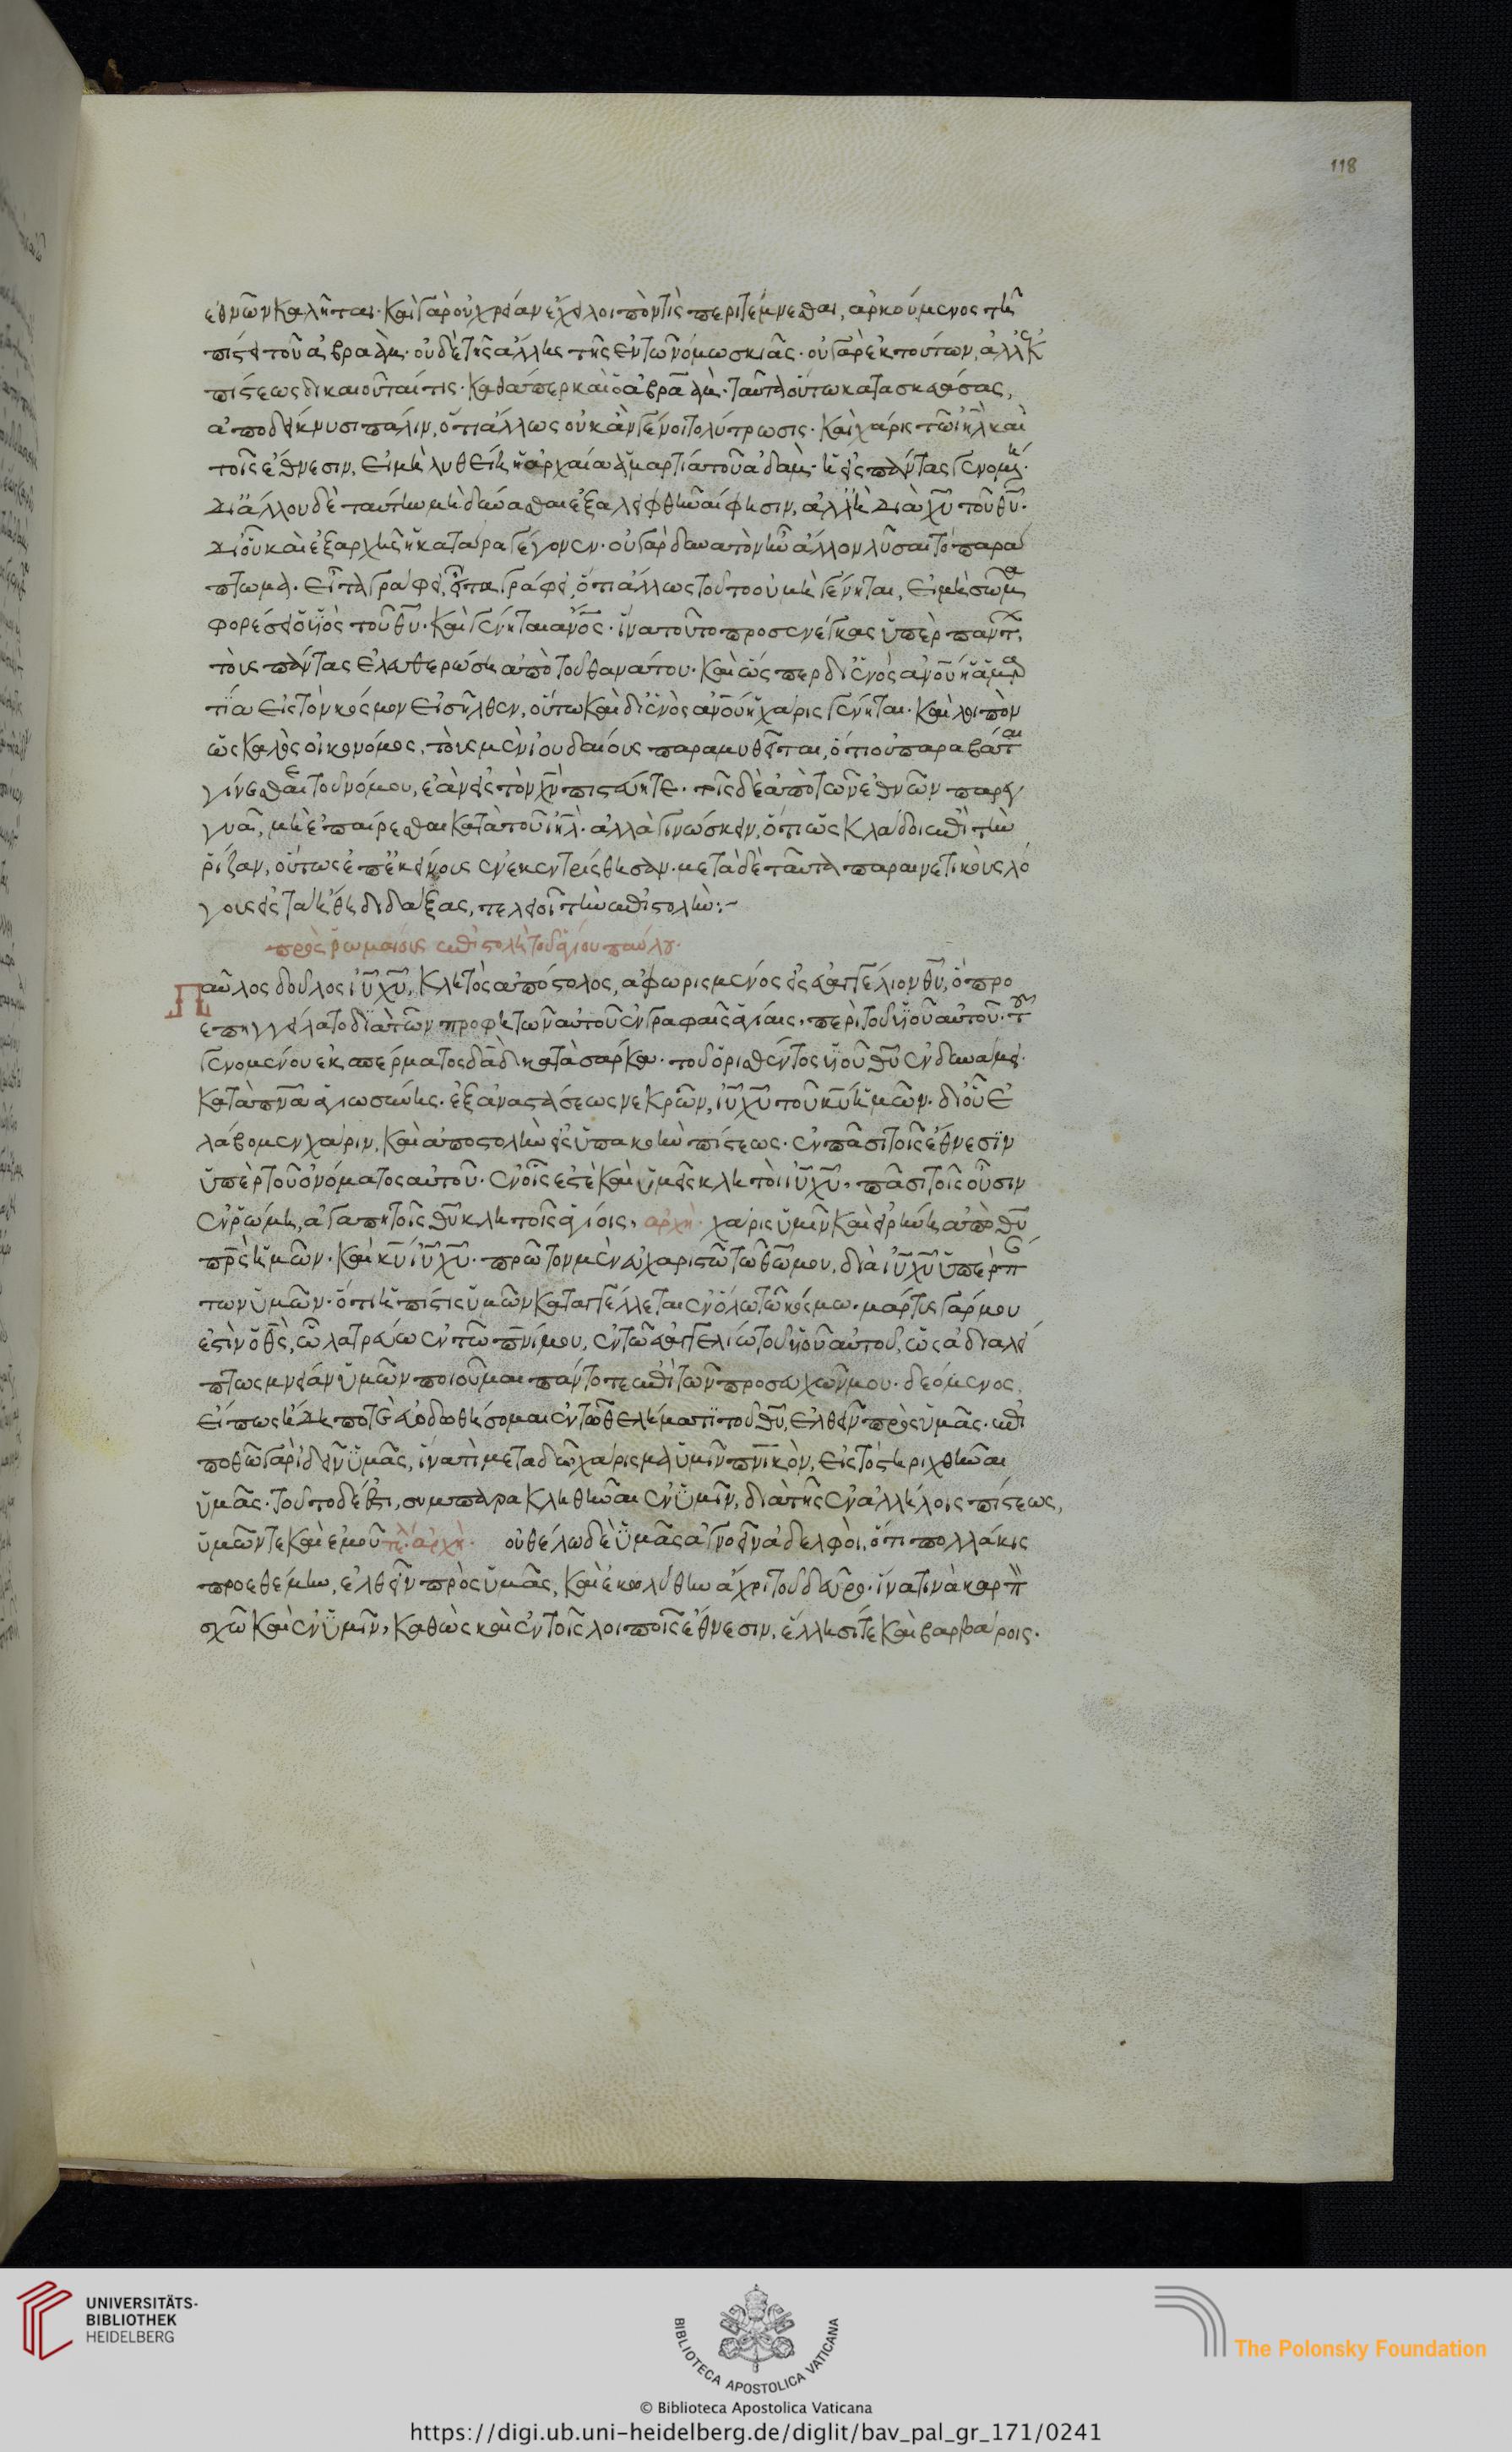 118
ἐθνῶν καλῆται· καὶ γὰρ οὐ χρείαν ἔχει λοιπόν τις περιτέμνεσθαι, ἀρκούμενος τῆ
πίστει τοῦ ἀβραάμ· οὐδὲ τῆς ἄλλης τῆς ἐν τῶ νόμω σκιᾶς· οὐ γὰρ ἐκ τούτων, ἀλλ' ἐκ
πίστεως δικαιοῦταί τις· καθάπερ καὶ ὁ ἀβραάμ· ταῦτα οὕτω κατασκευάσας,
ἀποδείκνυσι πάλιν, ὅτι ἄλλως οὐκ ἂν γένοιτο λύτρωσις· καὶ χάρις τῶ ιηλ καὶ
τοῖς ἔθνεσιν, εἰ μὴ λυθείη ἡ ἀρχαία ἁμαρτία τοῦ ἀδάμ· ἡ εἰς πάντας γενομένη·
δι' ἄλλου δὲ ταύτην μὴ δύνασθαι ἐξαλειφθῆναί φησιν, ἀλλ' ἢ διὰ χυ τοῦ θυ·
δι' οὗ καὶ ἐξαρχῆς ἡ κατάρα γέγονεν· οὐ γὰρ δυνατὸν ἦν ἄλλον λῦσαι τὸ παρά
πτωμα· εἶτα γράφει, ὅτι ἄλλως τοῦτο οὐ μὴ γένηται, εἰ μὴ σῶμα
φορέσει ὁ υἱὸς τοῦ θυ· καὶ γένηται ανος· ἵνα τοῦτο προσενέγκας ὑπὲρ πάντ
τοὺς πάντας ἐλευθερώση ἀπὸ τοῦ θανάτου· καὶ ὥσπερ δι' ἑνὸς ανου ἡ ἁμαρ
τία εἰς τὸν κόσμον εἰσῆλθεν, οὕτω καὶ δι' ἑνὸς ανου ἡ χάρις γένηται· καὶ λοιπὸν
ὡς καλὸς οἰκονόμος, τοὺς μὲν ἰουδαίους παραμυθεῖται, ὅτι οὐ παραβάται
γίνεσθαι τοῦ νόμου, ἐὰν εἰς τὸν χν πιστεύητε· τοῖς δὲ ἀπὸ τῶν ἐθνῶν παρεγ
γυᾶ, μὴ ἐπαίρεσθαι κατὰ τοῦ ιηλ· ἀλλὰ γινώσκειν, ὅτι ὡς κλάδοι ἐπὶ τὴν
ῥίζαν, οὕτως ἐπ' ἐκείνοις ἐνεκεντρίσθησαν· μετὰ δὲ ταῦτα παραινετικοὺς λό
γους εἰς τὰ ἤθη διδάξας, τελειοῖ τὴν ἐπιστολήν:~
πρὸς ῥωμαίους ἐπιστολὴ τοῦ ἁγίου παύλου·
Παῦλος δοῦλος ιυ χυ, κλητὸς ἀπόστολος, ἀφωρισμένος εἰς εὐαγγέλιον θυ, ὃ προ
επηγγείλατο διὰ τῶν προφητῶν αὐτοῦ ἐν γραφαῖς ἁγίαις, περὶ τοῦ υἱοῦ αὐτοῦ· τοῦ
γενομένου ἐκ σπέρματος δαδ κατὰ σάρκα· τοῦ ὁρισθέντος υἱοῦ θυ ἐν δυνάμει·
κατὰ πνα ἁγιωσύνης· ἐξ ἀναστάσεως νεκρῶν, ιυ χυ τοῦ κυ ἡμῶν· δι' οὗ ἐ
λάβομεν χάριν, καὶ ἀποστολὴν εἰς ὑπακοὴν πίστεως· ἐν πᾶσι τοῖς ἔθνεσιν
ὑπὲρ τοῦ ὀνόματος αὐτοῦ· ἐν οἷς ἐστὲ καὶ ὑμεῖς κλητοὶ ιυ χυ, πᾶσι τοῖς οὖσιν
ἐν ῥώμη, ἀγαπητοῖς θυ κλητοῖς ἁγίοις, ἀρχὴ· χάρις ὑμῖν καὶ εἰρήνη ἀπὸ θυ
πρς ἡμῶν· καὶ κυ ιυ χυ· πρῶτον μὲν εὐχαριστῶ τῶ θῶ μου, διὰ ιυ χυ ὑπὲρ πάν
των ὑμῶν· ὅτι ἡ πίστις ὑμῶν καταγγέλλεται ἐν ὅλω τῶ κόσμω· μάρτυς γάρ μου
ἐστὶν ὁ θς, ὧ λατρεύω ἐν τῶ πνι μου, ἐν τῶ εὐαγγελίω τοῦ υἱοῦ αὐτοῦ, ὡς ἀδιαλεί
πτως μνείαν ὑμῶν ποιοῦμαι πάντοτε ἐπὶ τῶν προσευχῶν μου· δεόμενος,
εἴπως ἤδη ποτὲ εὐοδωθήσομαι ἐν τῶ θελήματι τοῦ θυ, ἐλθεῖν πρὸς ὑμᾶς· ἐπι
ποθῶ γὰρ ἰδεῖν ὑμᾶς, ἵνα τὶ μεταδῶ χάρισμα ὑμῖν πνικὸν, εἰς τὸ στηριχθῆναι
ὑμᾶς· τοῦτο δέ ἐστι, συμπαρακληθῆναι ἐν ὑμῖν, διὰ τῆς ἐν ἀλλήλοις πίστεως,
ὑμῶν τε καὶ ἐμοῦ τὲ· ἀρχὴ· οὐ θέλω δὲ ὑμᾶς ἀγνοεῖν ἀδελφοὶ, ὅτι πολλάκις
προεθέμην, ἐλθεῖν πρὸς ὑμᾶς, καὶ ἐκωλύθην ἄχρι τοῦ δεῦρο· ἵνα τινὰ καρπὸν
σχῶ καὶ ἐν ὑμῖν, καθὼς καὶ ἐν τοῖς λοιποῖς ἔθνεσιν, ἕλλησί τε καὶ βαρβάροις·
UNIVERSITÄTS-
BIBLIOTHEK
HEIDELBERG
BIBLIOTECA APOSTOLICA VATICANA
The Polonsky Foundation
© Biblioteca Apostolica Vaticana
https://digi.ub.uni-heidelberg.de/diglit/bav_pal_gr_171/0241